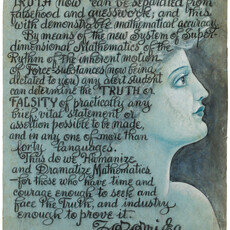 TRUTH now can be separated from
falsehood and guesswork; and this
with demonstrable mathematical accuracy.
By means of the new System of Super-
dimensional Mathematics of the
Rythm of the inherent motion
of Force-substances (now being
dictated to you) any alert student
can determine the TRUTH or
FALSITY of practically any
brief, vital statement or
assertion possible to be made,
and in any one of more than
forty languages.
Thus do we Humanize
and Dramatize Mathematics
for those who have time and
courage enough to seek and
face the Truth, and industry
enough to prove it.